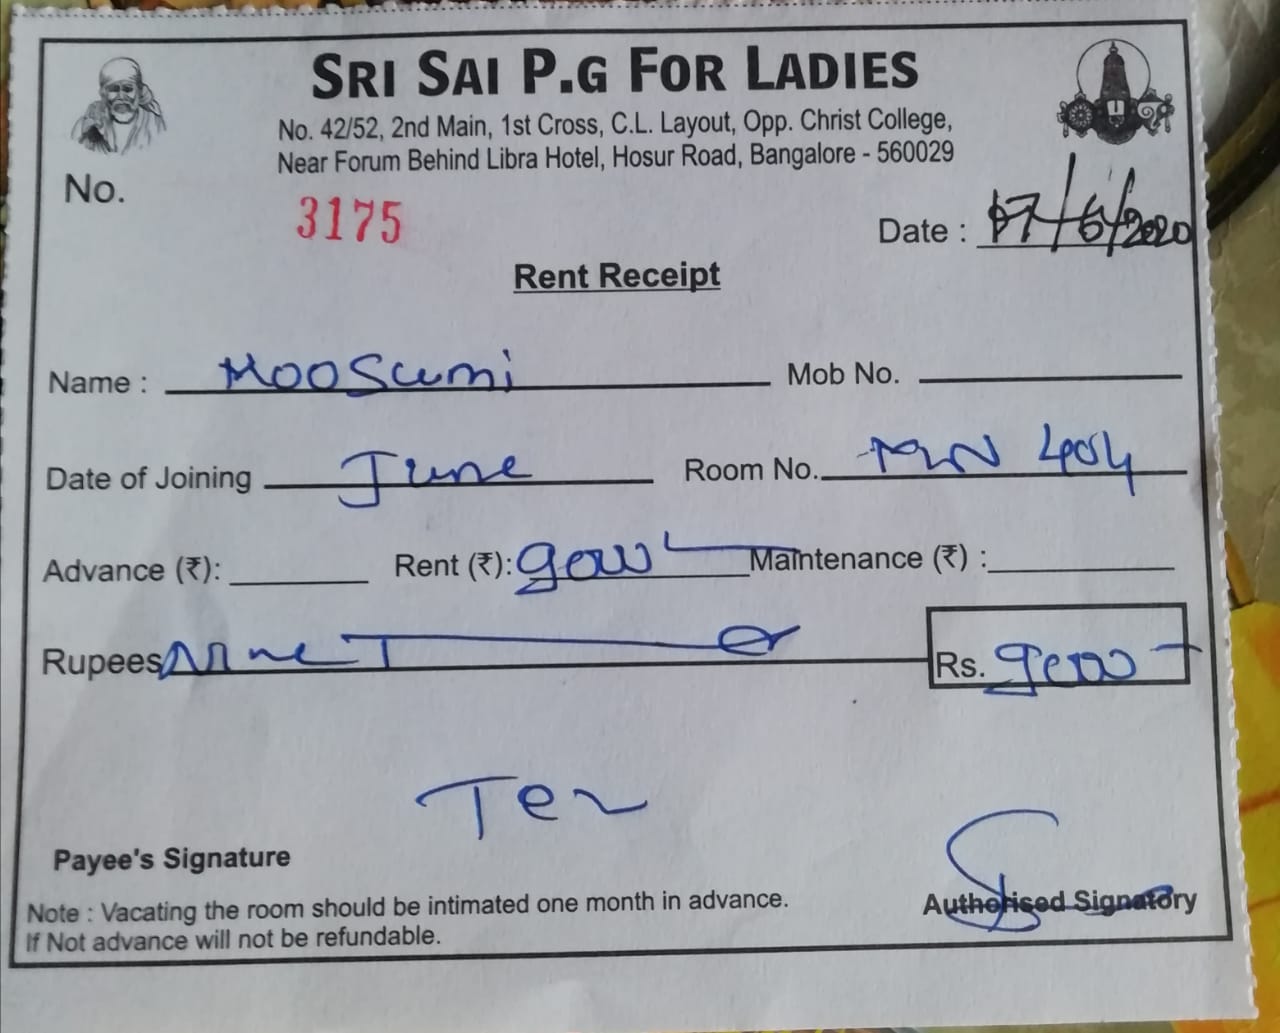 SRI SAI P.G FOR LADIES
No. 42/52, 2nd Main, 1st Cross, C.L. Layout, Opp. Christ College,
Near Forum Behind Libra Hotel, Hosur Road, Bangalore - 560029
No. 3175
Date : 17/6/2020
Rent Receipt
Name : Moosumi Mob No.
Date of Joining June Room No. 404
Advance (₹): Rent (₹): 9000 Maintenance (₹) :
Rupees Nine Rs. 9000
Payee's Signature
Authorised Signatory
Note : Vacating the room should be intimated one month in advance.
If Not advance will not be refundable.